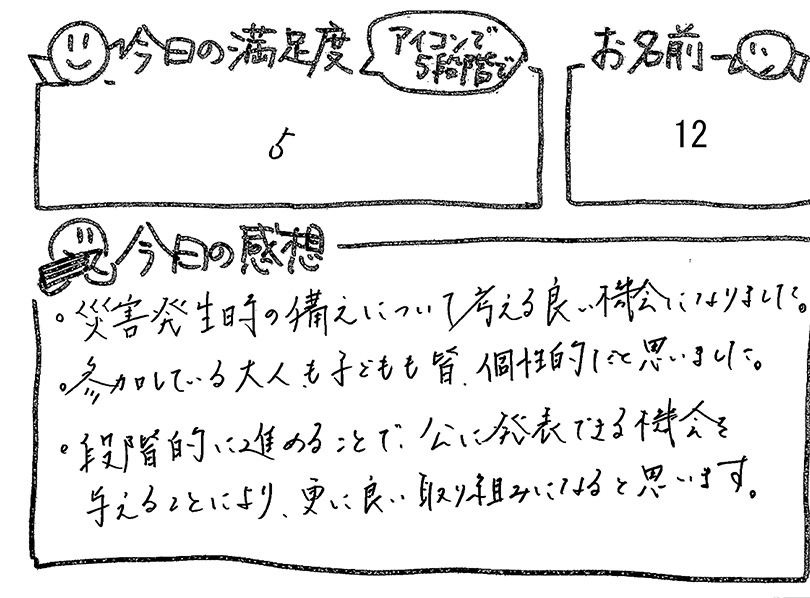 今日の満足度
アイコンで
5段階で
お名前
5
12
今日の感想
。災害発生時の備えについて考える良い機会になりました。
。参加している大人も子どもも皆、個性的だと思いました。
。段階的に進めることで、公に発表できる機会を
与えることにより、更に良い取り組みになると思います。